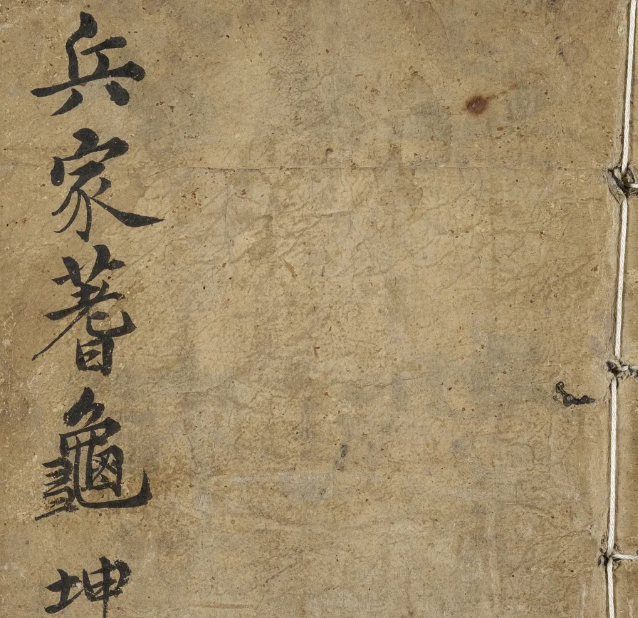 兵家蓍龜 坤